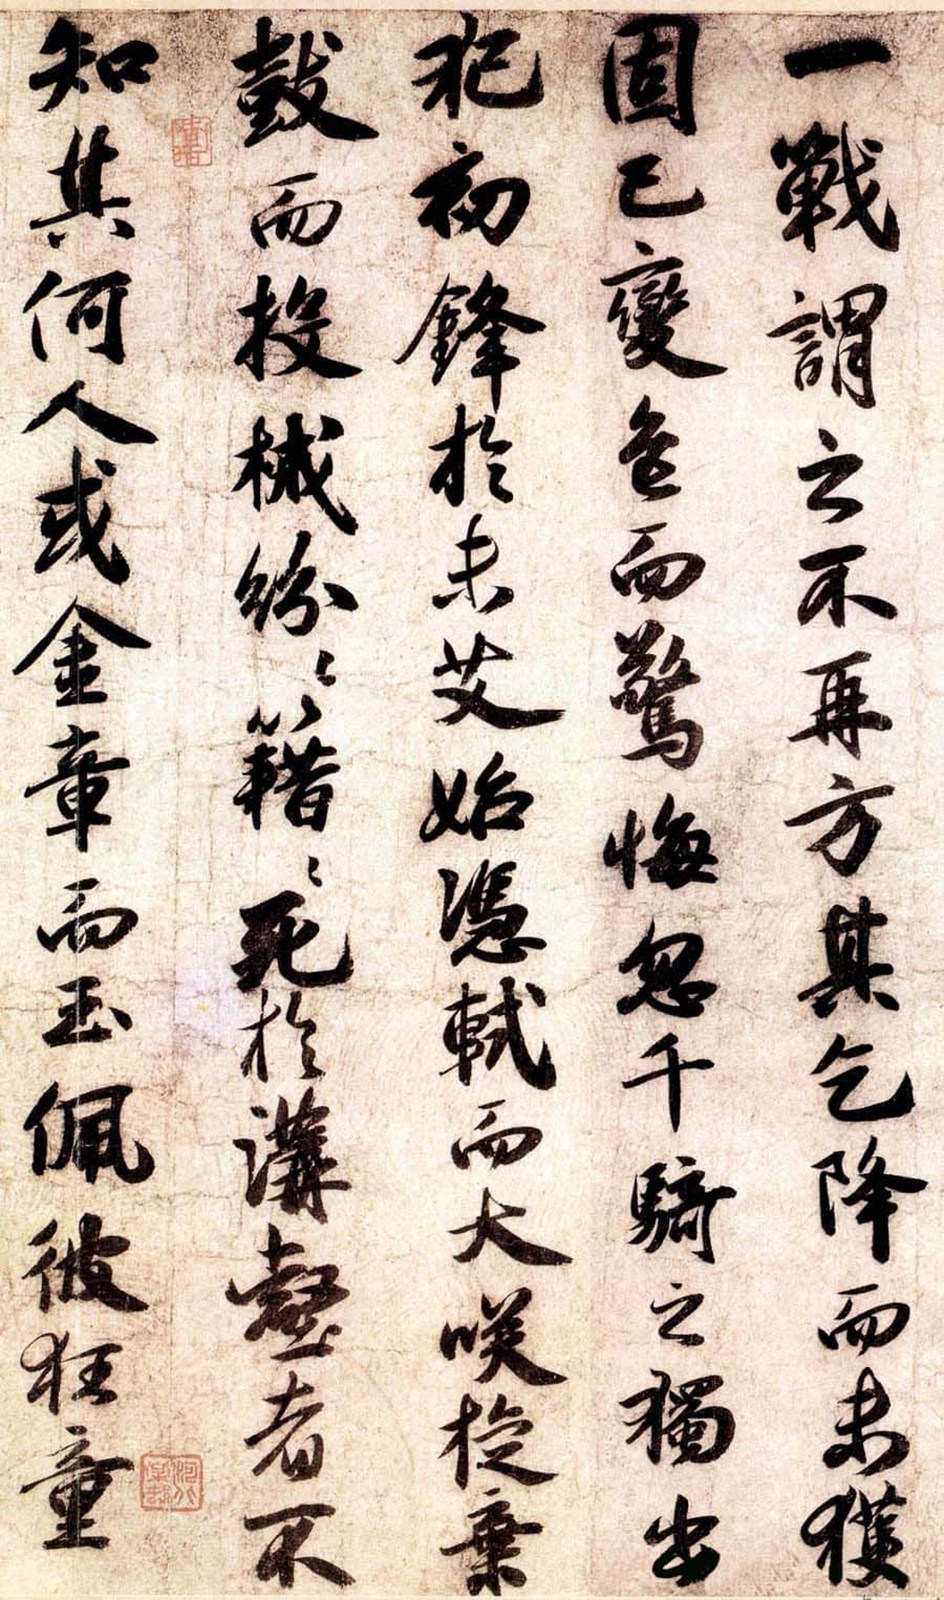 一戰謂之不再方其乞降而未獲
固已變色而驚悔忽千騎之獨出
犯初鋒於未艾始憑軾而大咲㧡棄
鼓而投械紛〻籍〻死於溝壑者不
知其何人或金章而玉佩彼狂童